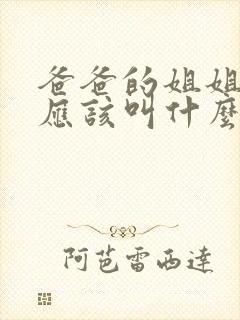 爸爸的姐姐
應該叫什麼
阿芭雷西達